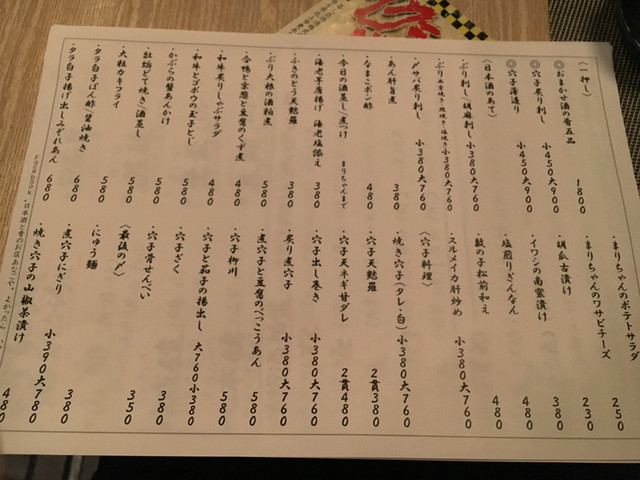 (一押し)
◎おまかせ酒の肴五品 1800
◎穴子炙り刺し 小450大900
◎穴子薄造り 小450大900
(日本酒のあて)
・ぶり刺し/胡麻刺し 小380大760
・〆サバ炙り刺し 小380大760
・あん肝旨煮 380
・なまこポン酢 480
・今日の酒蒸し/煮つけ まりちゃんまで
・海老芋唐揚げ 海老塩添え 380
・ふきのとう天麩羅 380
・ぶり大根の酒粕煮 580
・合鴨と京葱と豆腐のくず煮 480
・和牛炙りしゃぶサラダ 480
・和牛とゴボウの玉子とじ 480
・かぶらの蟹あんかけ 580
・牡蛎どて焼き/酒蒸し 580
・大粒カキフライ 580
・タラ白子ぽん酢/醤油焼き 680
・タラ白子揚げ出しみぞれあん 680
・まりちゃんのポテトサラダ 250
・まりちゃんのワサビチーズ 230
・胡瓜古漬け 380
・イワシの南蛮漬け 480
・塩煎りぎんなん 480
・数の子松前和え 480
・スルメイカ肝炒め 小380大760
(穴子料理)
・焼き穴子(タレ・白) 小380大760
・穴子天麩羅 2貫380
・穴子天ネギ甘ダレ 2貫480
・穴子出し巻き 小380大760
・炙り煮穴子 小380大760
・煮穴子と豆腐のべっこうあん 580
・穴子柳川 580
・穴子と茄子の揚出し 大760小380
・穴子ざく 580
・穴子骨せんべい 380
(最後の〆)
・にゅう麺 350
・煮穴子にぎり 380
・焼き穴子の山椒茶漬け 小390大780
480
Facebook ・日本酒と肴のお店あなごや。よかったら